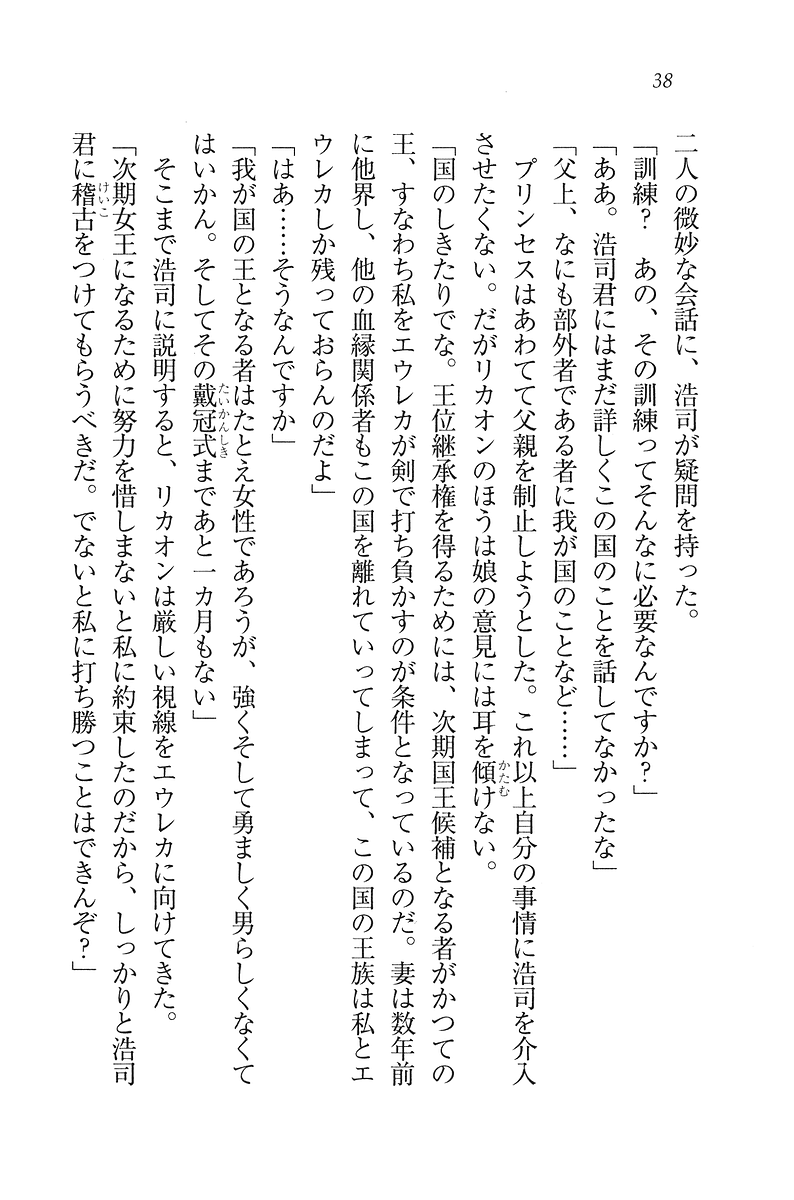 38
二人の微妙な会話に、浩司が疑問を持った。
「訓練？　あの、その訓練ってそんなに必要なんですか？」
「ああ。浩司君にはまだ詳しくこの国のことを話してなかったな」
「父上、なにも部外者である者に我が国のことなど……」
　プリンセスはあわてて父親を制止しようとした。これ以上自分の事情に浩司を介入
させたくない。だがリカオンのほうは娘の意見には耳を傾けない。
かたむ
「国のしきたりでな。王位継承権を得るためには、次期国王候補となる者がかつての
王、すなわち私をエウレカが剣で打ち負かすのが条件となっているのだ。妻は数年前
に他界し、他の血縁関係者もこの国を離れていってしまって、この国の王族は私とエ
ウレカしか残っておらんのだよ」
「はあ……そうなんですか」
「我が国の王となる者はたとえ女性であろうが、強くそして勇ましく男らしくなくて
はいかん。そしてその戴冠式まであと一カ月もない」
たいかんしき
　そこまで浩司に説明すると、リカオンは厳しい視線をエウレカに向けてきた。
「次期女王になるために努力を惜しまないと私に約束したのだから、しっかりと浩司
君に稽古をつけてもらうべきだ。でないと私に打ち勝つことはできんぞ？」
けいこ